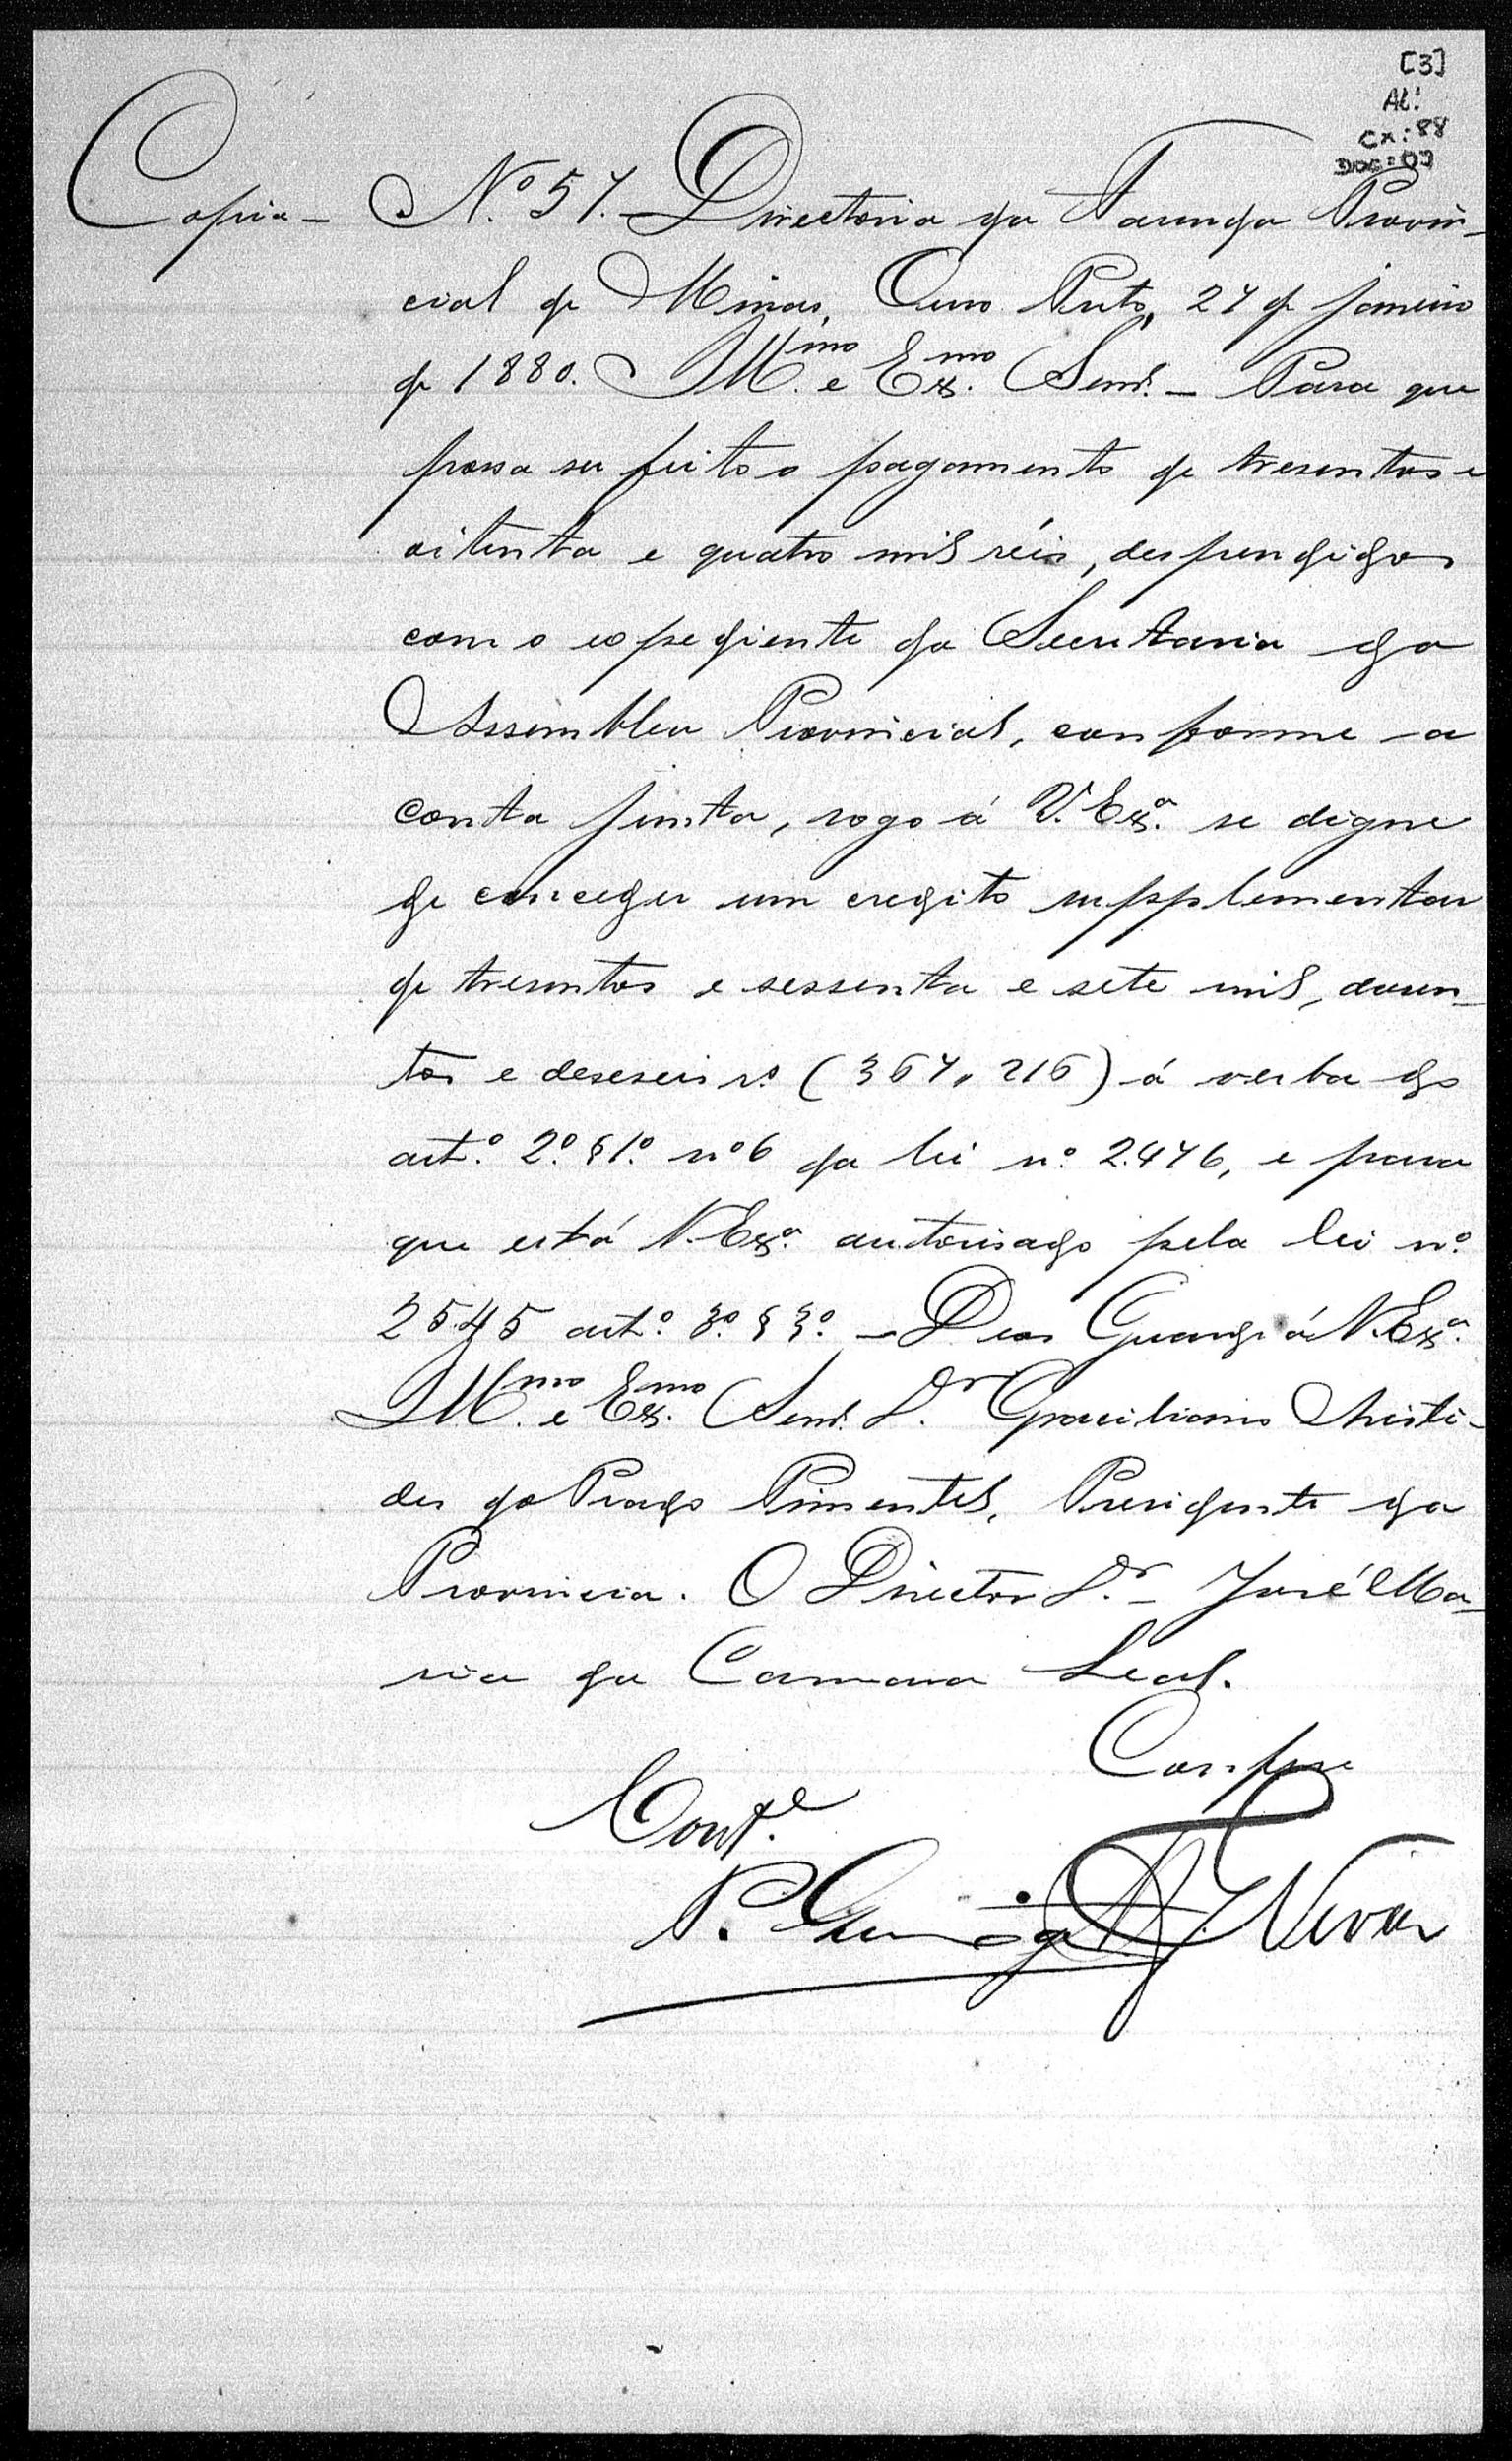 [3]
AL:
CX: 88
DOC: 03
Copia – Nº 57. Directoria da Fazenda Provin-
cial de Minas, Ouro Preto, 27 de janeiro
de 1880. Illmo. e Exmo. Senr. – Para que
possa ser feito o pagamento de tresentos e
oitenta e quatro mil réis, despendidos
com o expediente da Secretaria da
Assemblea Provincial, conforme a
conta junta, rogo á V. Exª. se digne
de conceder um credito supplementar
de tresentos e sessenta e sete mil, dusen-
tos e deseseis rs. (367,216) á verba do
artº. 2º. § 1º. nº 6 da lei nº. 2.476, e para
que está V. Exª. autorisado pela lei nº.
2545 artº. 3º. § 3º. – Deos Guarde á V. Exª.
Illmo. e Exmo. Senr. Dr. Graciliano Aristi-
des do Prado Pimentel, Presidente da
Provincia. O Director Dr. – José Ma-
ria da Camara Leal.
Confere
Conf.e
P.